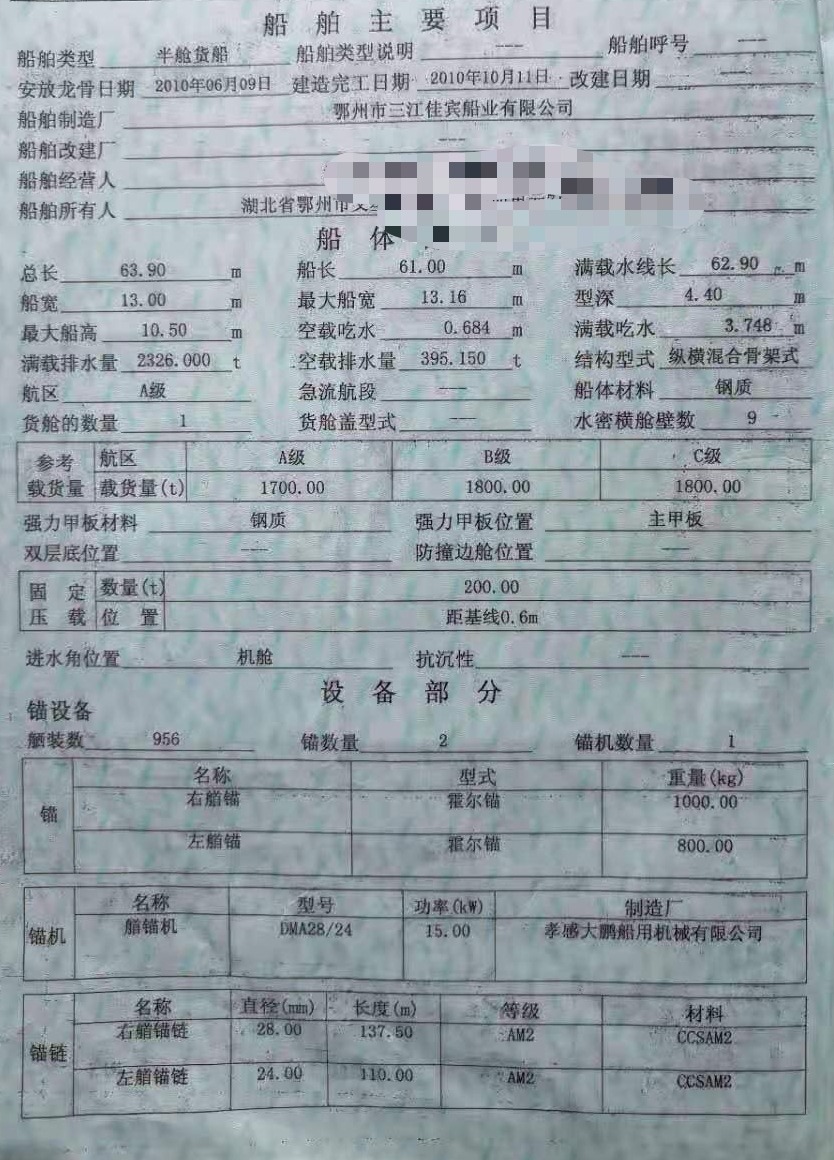 船舶主要项目
船舶类型 半舱货船 船舶类型说明 --- 船舶呼号 ---
安放龙骨日期 2010年06月09日 建造完工日期 2010年10月11日 改建日期 ---
船舶制造厂 鄂州市三江佳宾船业有限公司
船舶改建厂 ---
船舶经营人
船舶所有人 湖北省鄂州市
船体
总长 63.90 m 船长 61.00 m 满载水线长 62.90 m
船宽 13.00 m 最大船宽 13.16 m 型深 4.40 m
最大船高 10.50 m 空载吃水 0.684 m 满载吃水 3.748 m
满载排水量 2326.000 t 空载排水量 395.150 t 结构型式 纵横混合骨架式
航区 A级 急流航段 --- 船体材料 钢质
货舱的数量 1 货舱盖型式 --- 水密横舱壁数 9
参考 航区 A级 B级 C级
载货量 载货量(t) 1700.00 1800.00 1800.00
强力甲板材料 钢质 强力甲板位置 主甲板
双层底位置 --- 防撞边舱位置 ---
固定 数量(t) 200.00
压载 位置 距基线0.6m
进水角位置 机舱 抗沉性 ---
设备部分
锚设备
舾装数 956 锚数量 2 锚机数量 1
名称 型式 重量(kg)
锚 右艏锚 霍尔锚 1000.00
左艏锚 霍尔锚 800.00
名称 型号 功率(kW) 制造厂
锚机 艏锚机 DMA28/24 15.00 孝感大鹏船用机械有限公司
名称 直径(mm) 长度(m) 等级 材料
锚链 右艏锚链 28.00 137.50 AM2 CCSAM2
左艏锚链 24.00 110.00 AM2 CCSAM2